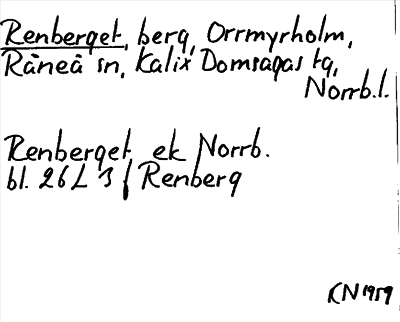 Renberget, berg, Orrmyrholm,
Råneå sn, Kalix Domsagas tg,
Norrb.l.
Renberget ek Norrb.
bl. 26L 3 | Renberg
KN 1959